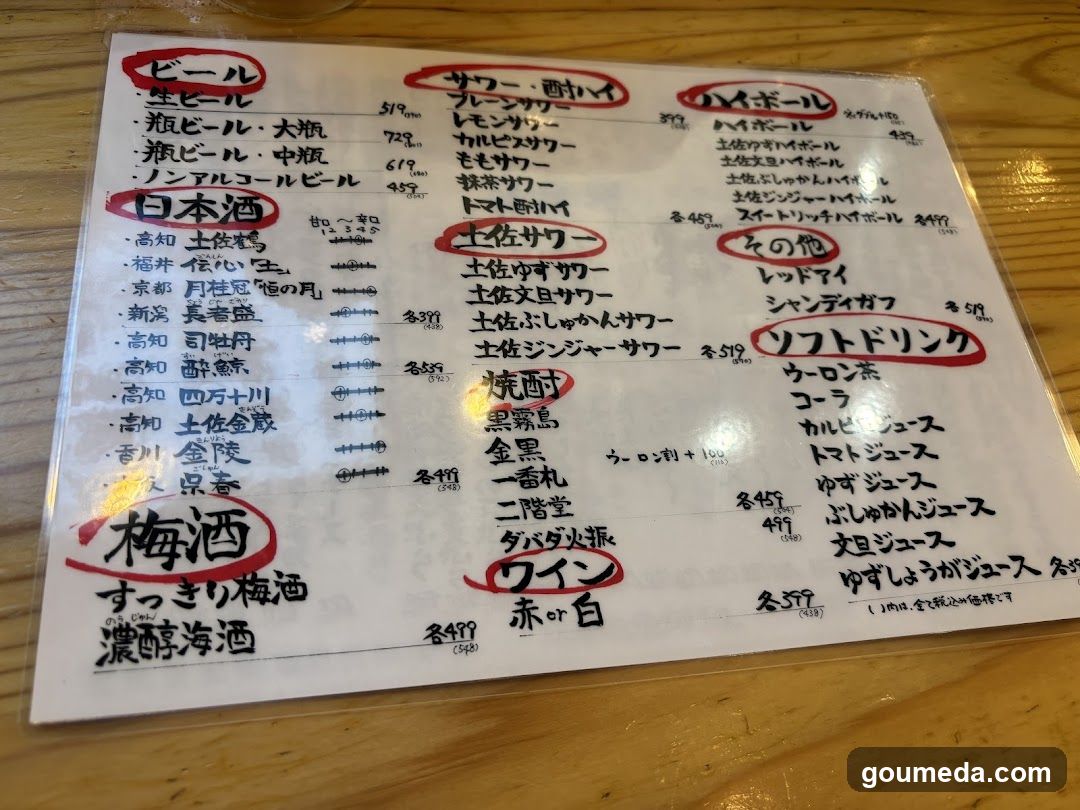 ビール
・生ビール 519
・瓶ビール・大瓶 729
・瓶ビール・中瓶 619
・ノンアルコールビール 459
日本酒
甘口〜辛口
1 2 3 4 5
・高知 土佐鶴
・福井 伝心「生」
・京都 月桂冠「恒の月」
・新潟 長者盛 各399
(438)
・高知 司牡丹
・高知 酔鯨 各539
(592)
・高知 四万十川
・高知 土佐金蔵
・香川 金陵
呉春 各499
(548)
梅酒
すっきり梅酒
濃醇海酒 各499
(548)
サワー・酎ハイ
プレーンサワー 399
レモンサワー
カルピスサワー
ももサワー
抹茶サワー
トマト酎ハイ 各459
土佐サワー
土佐ゆずサワー
土佐文旦サワー
土佐ぶしゅかんサワー
土佐ジンジャーサワー 各519
(570)
焼酎
黒霧島
金黒 ウーロン割+100
(110)
一番札
二階堂 各459
(504)
ダバダ火振 499
(548)
ワイン
赤or白 各399
(438)
ハイボール
ハイボール 439
土佐ゆずハイボール
土佐文旦ハイボール
土佐ぶしゅかんハイボール
土佐ジンジャーハイボール
スイートリッチハイボール 各499
(548)
その他
レッドアイ
シャンディガフ 各519
(570)
ソフトドリンク
ウーロン茶
コーラ
カルピスジュース
トマトジュース
ゆずジュース
ぶしゅかんジュース
文旦ジュース
ゆずしょうがジュース 各39
( )内は、全て税込み価格です
goumeda.com